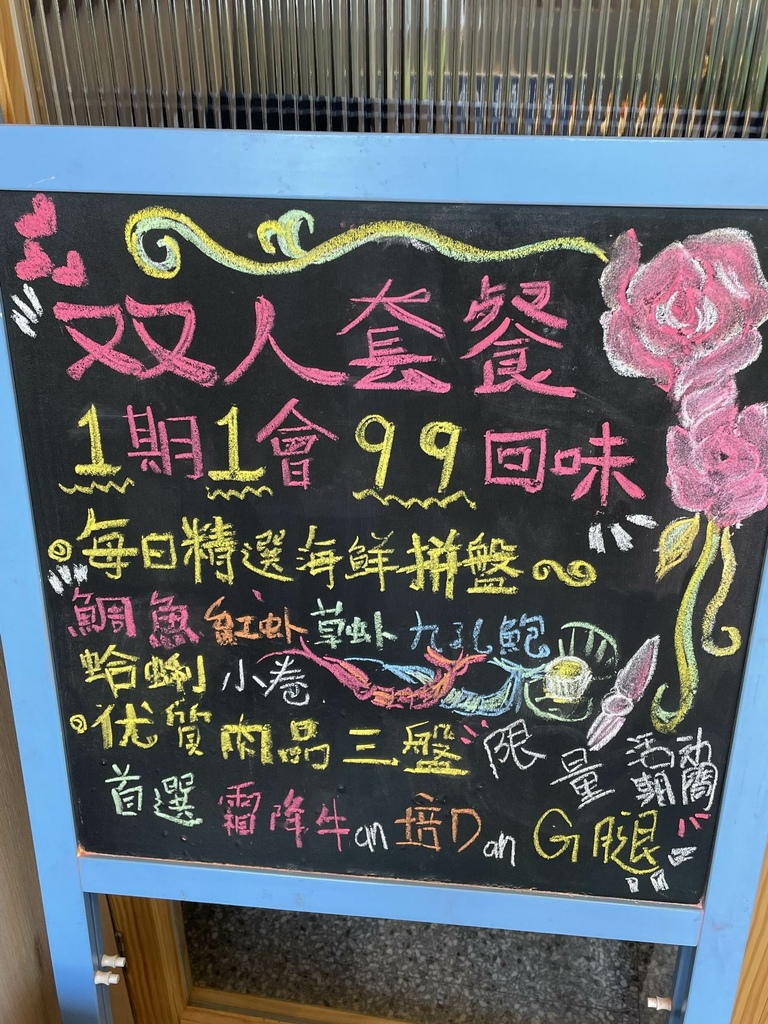 双人套餐
1期1會 99回味
每日精選海鮮拼盤
鯛魚 紅虾 草虾 九孔鮑
蛤蜊 小卷
优質肉品三盤 限量 活动期間
首選 霜降牛 or 培D or G腿